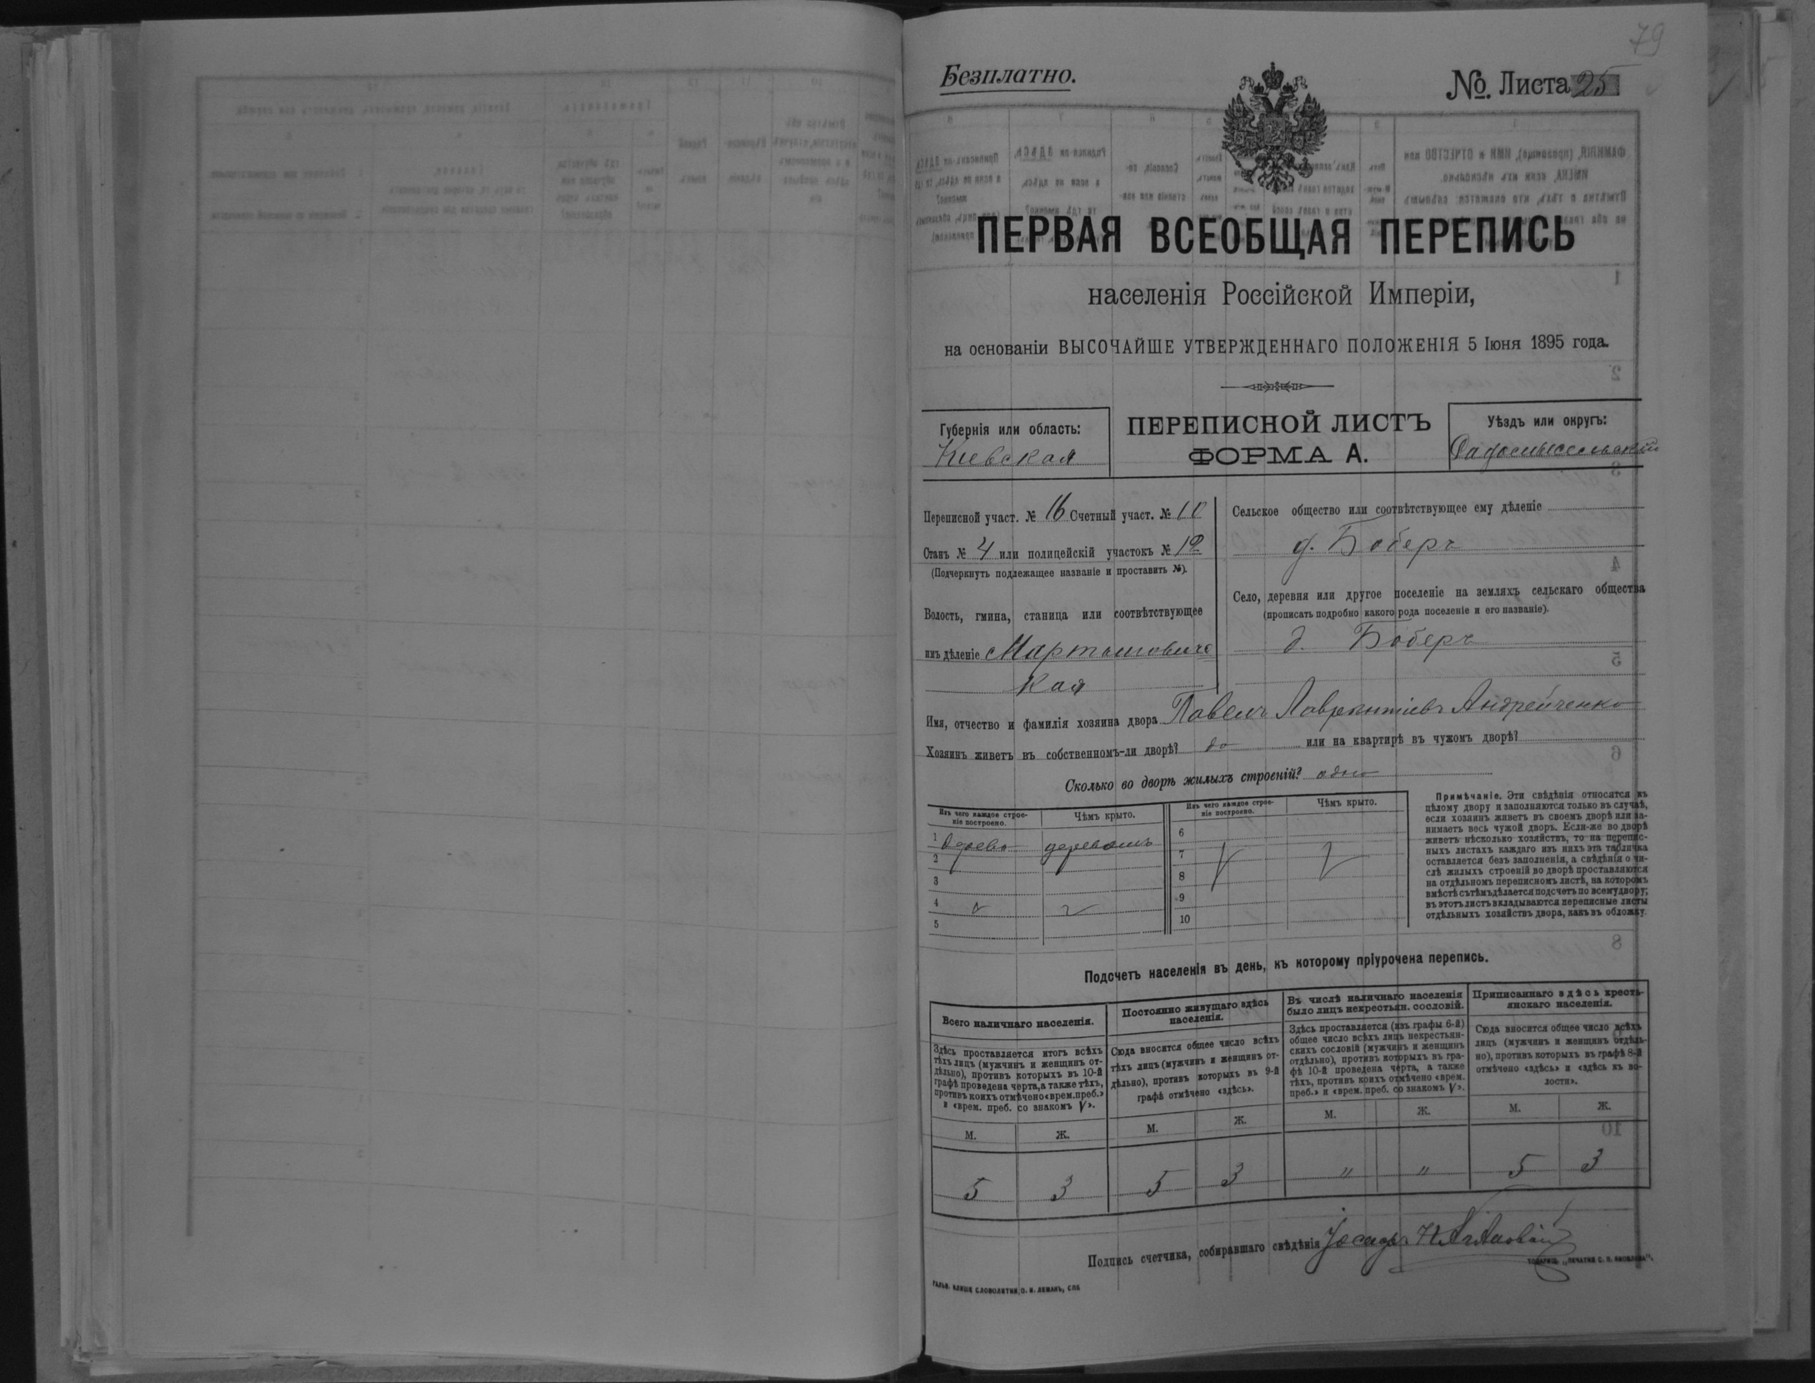 79
Безплатно.
№ Листа 25
ПЕРВАЯ ВСЕОБЩАЯ ПЕРЕПИСЬ
населенія Россійской Имперіи,
на основаніи ВЫСОЧАЙШЕ УТВЕРЖДЕННАГО ПОЛОЖЕНІЯ 5 Іюня 1895 года.
Губернія или область:
Кіевская
ПЕРЕПИСНОЙ ЛИСТЪ
ФОРМА А.
Уѣздъ или округъ:
Радомысльскій
Переписной участ. № 16 Счетный участ. № 10
Станъ № 4 или полицейскій участокъ № 12
(Подчеркнуть подлежащее названіе и проставить №).
Волость, гмина, станица или соотвѣтствующее
имъ дѣленіе Мартыновичс
кая
Сельское общество или соотвѣтствующее ему дѣленіе
д. Боберъ
Село, деревня или другое поселеніе на земляхъ сельскаго общества
(прописать подробно какого рода поселеніе и его названіе).
д. Боберъ
Имя, отчество и фамилія хозяина двора Павелъ Лаврентіевъ Андрейченко
Хозяинъ живетъ въ собственномъ-ли дворѣ? да или на квартирѣ въ чужомъ дворѣ?
Сколько во дворѣ жилыхъ строеній? одно
Изъ чего каждое строе-
ніе построено.
Чѣмъ крыто.
1 Дерево деревомъ
2
3
4
5
Изъ чего каждое строе-
ніе построено.
Чѣмъ крыто.
6
7
8
9
10
Примѣчаніе. Эти свѣдѣнія относятся къ
цѣлому двору и заполняются только въ случаѣ,
если хозяинъ живетъ въ своемъ дворѣ или за-
нимаетъ весь чужой дворъ. Если-же во дворѣ
живетъ нѣсколько хозяйствъ, то на перепис-
ныхъ листахъ каждаго изъ нихъ эта табличка
оставляется безъ заполненія, а свѣдѣнія о чи-
слѣ жилыхъ строеній во дворѣ проставляются
на отдѣльномъ переписномъ листѣ, на которомъ
вмѣстѣ съ тѣмъ дѣлается подсчетъ по всему двору;
въ этотъ листъ вкладываются переписные листы
отдѣльныхъ хозяйствъ двора, какъ въ обложку.
Подсчетъ населенія въ день, къ которому пріурочена перепись.
Всего наличнаго населенія.
Здѣсь проставляется итогъ всѣхъ
тѣхъ лицъ (мужчинъ и женщинъ от-
дѣльно), противъ которыхъ въ 10-й
графѣ проведена черта, а также тѣхъ,
противъ коихъ отмѣчено «врем. преб.»
и «врем. преб. со знакомъ V».
М. Ж.
5 3
Постоянно живущаго здѣсь
населенія.
Сюда вносится общее число всѣхъ
тѣхъ лицъ (мужчинъ и женщинъ от-
дѣльно), противъ которыхъ въ 9-й
графѣ отмѣчено «здѣсь».
М. Ж.
5 3
Въ числѣ наличнаго населенія
было лицъ некрестьян. сословій.
Здѣсь проставляется (изъ графы 6-й)
общее число всѣхъ лицъ некрестьян-
скихъ сословій (мужчинъ и женщинъ
отдѣльно), противъ которыхъ въ гра-
фѣ 10-й проведена черта, а также
тѣхъ, противъ коихъ отмѣчено «врем.
преб.» и «врем. преб. со знакомъ V».
М. Ж.
" "
Приписаннаго здѣсь кресть-
янскаго населенія.
Сюда вносится общее число всѣхъ
лицъ (мужчинъ и женщинъ отдѣль-
но), противъ которыхъ въ графѣ 8-й
отмѣчено «здѣсь» и «здѣсь въ во-
лости».
М. Ж.
5 3
Подпись счетчика, собиравшаго свѣдѣнія
ГАЛЬВ. КЛИШЕ СЛОВОЛИТНИ О. И. ЛЕМАНЪ, СПБ